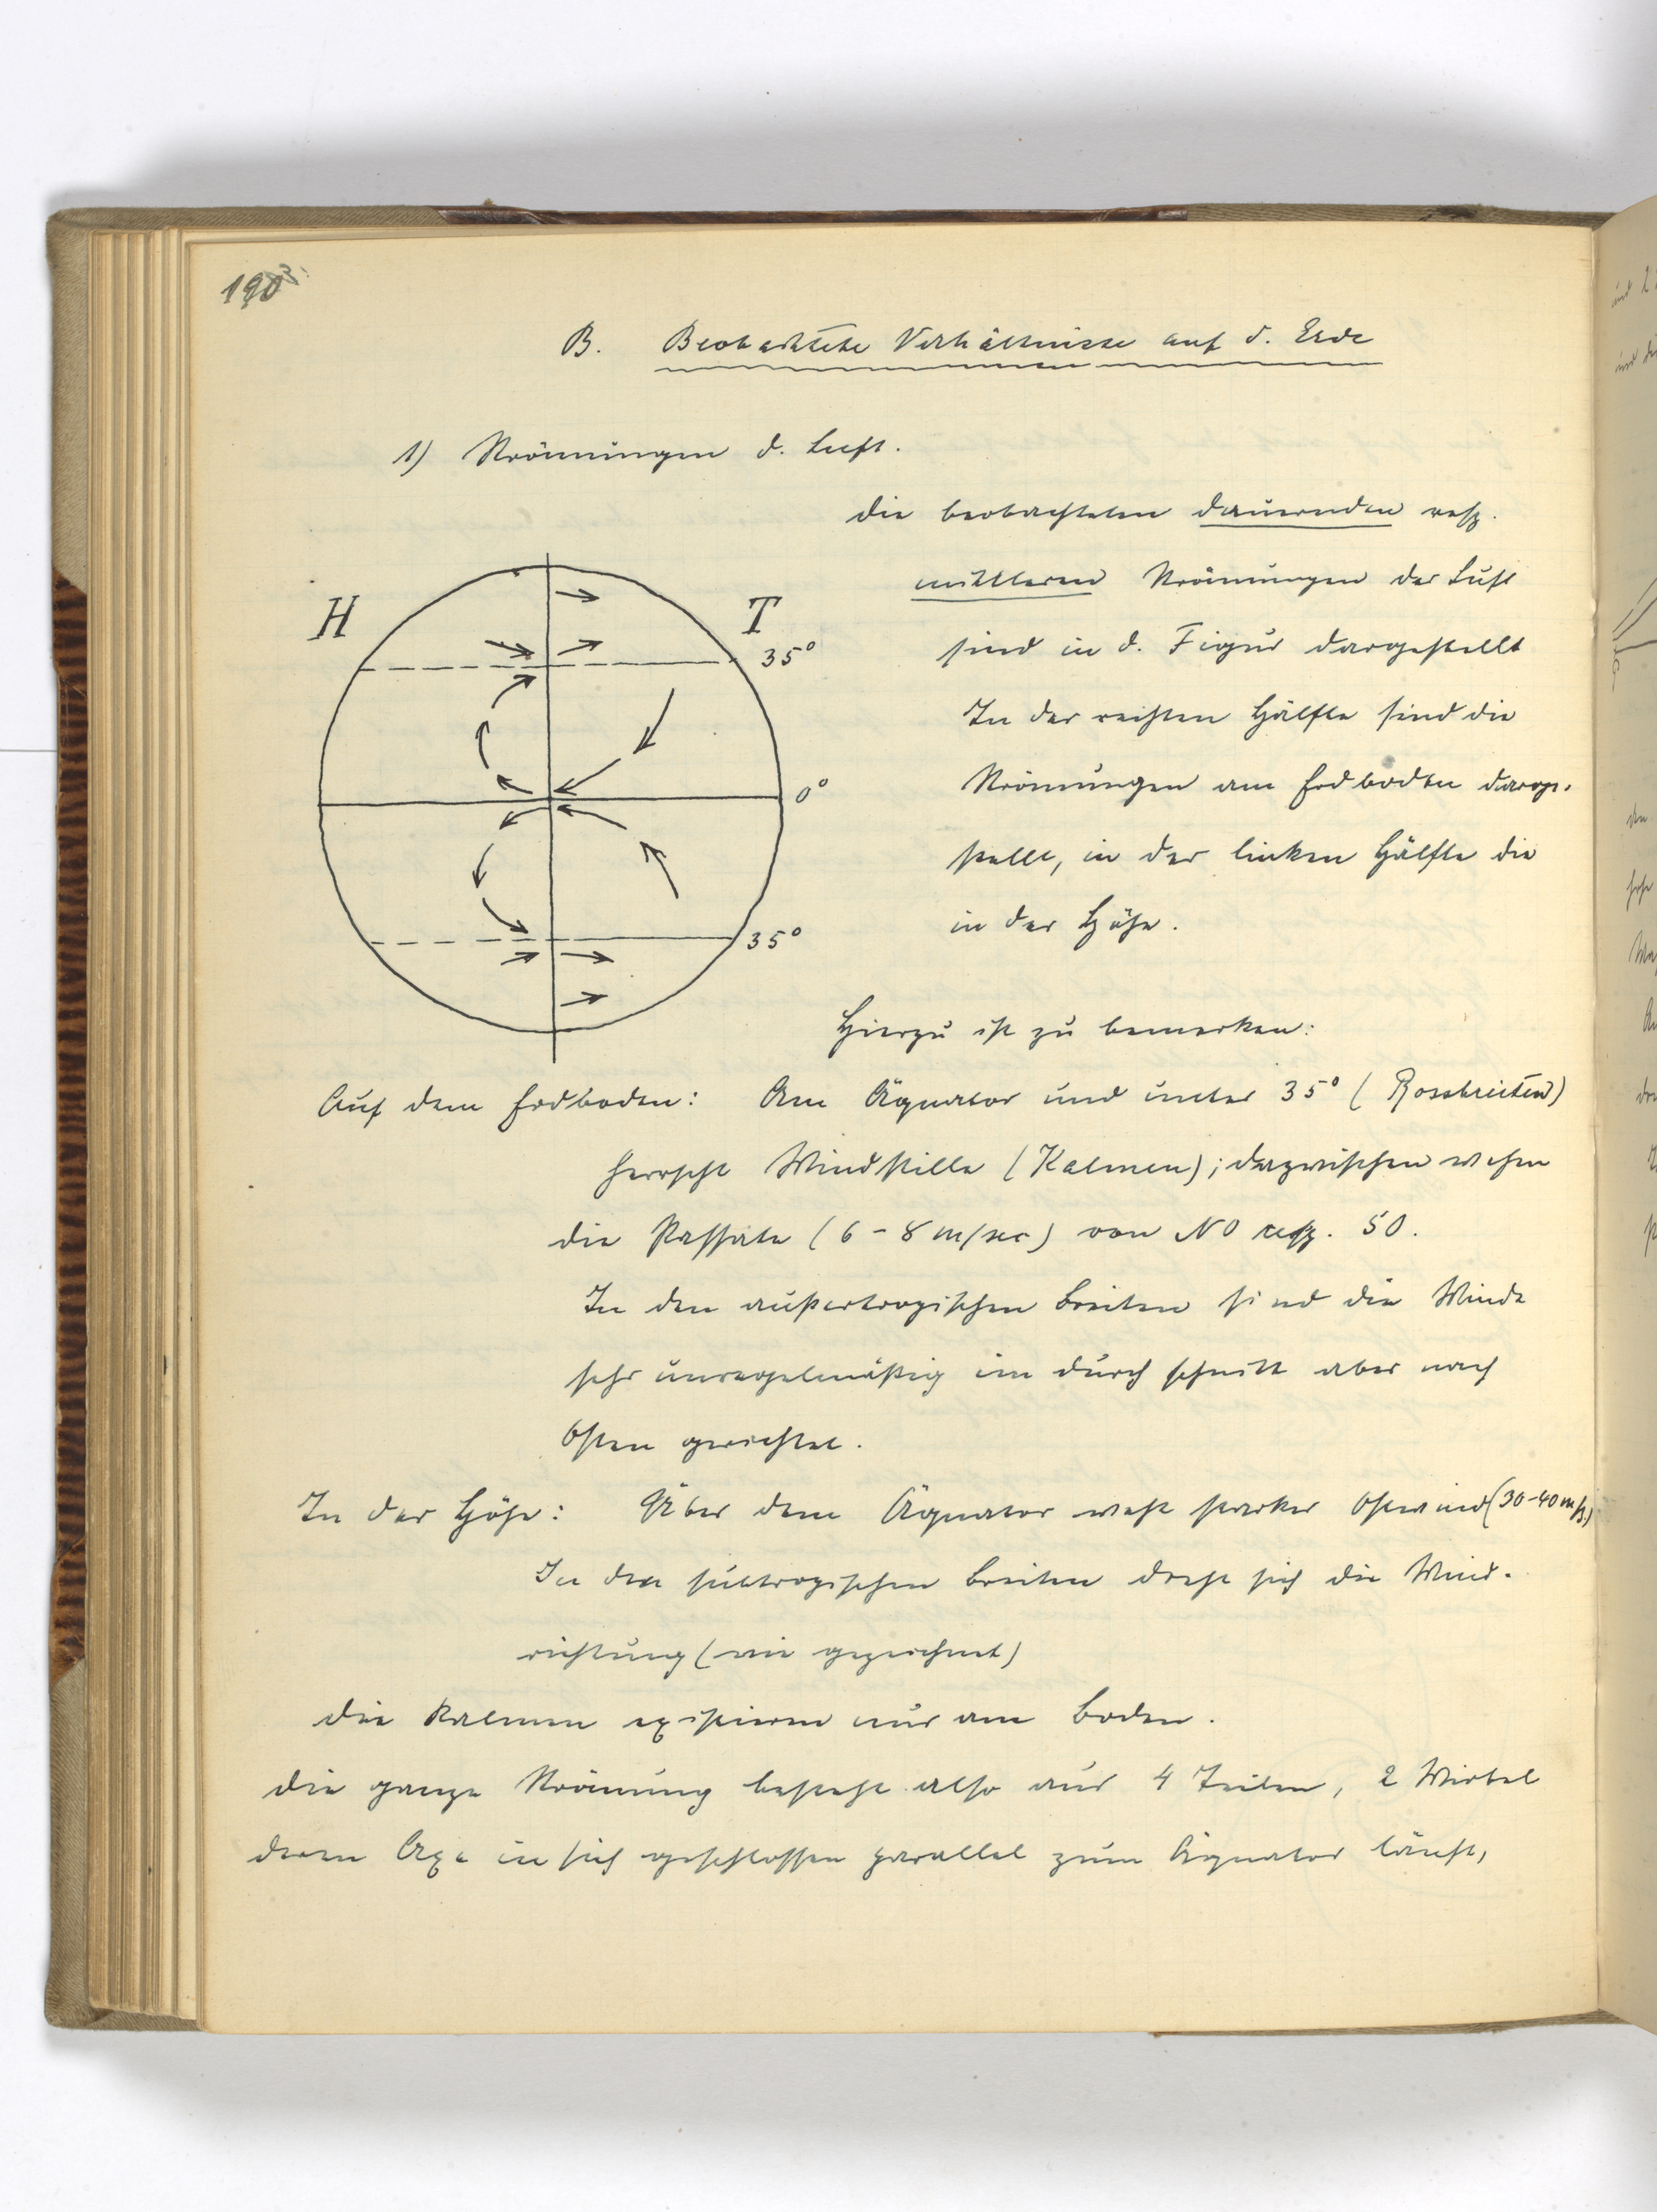 190
B. Beobachtete Verhältnisse auf d. Erde
1) Strömungen d. Luft.
Die beobachteten dauernden resp.
mittleren Strömungen der Luft
H T
sind in d. Figur dargestellt
35°
In der rechten Hälfte sind die
Strömungen am Erdboden darge-
0°
stellt, in der linken Hälfte die
in der Höhe.
35°
Hierzu ist zu bemerken:
Auf dem Erdboden: Am Äquator und unter 35° (Rossbreiten)
herrscht Windstille (Kalmen); dazwischen wehen
die Passate (6-8 m/sec) von NO resp. SO.
In den außertropischen Breiten sind die Winde
sehr unregelmäßig im Durchschnitt aber nach
Osten gerichtet.
In der Höhe: Über dem Äquator weht starker Ostwind (30-40 m/s.)
In den subtropischen Breiten dreht sich die Wind-
richtung (wie gezeichnet)
Die Kalmen existieren nur am Boden.
Die ganze Strömung besteht also aus 4 Teilen, 2 Wirbel
deren Axe in sich geschlossen parallel zum Äquator läuft,